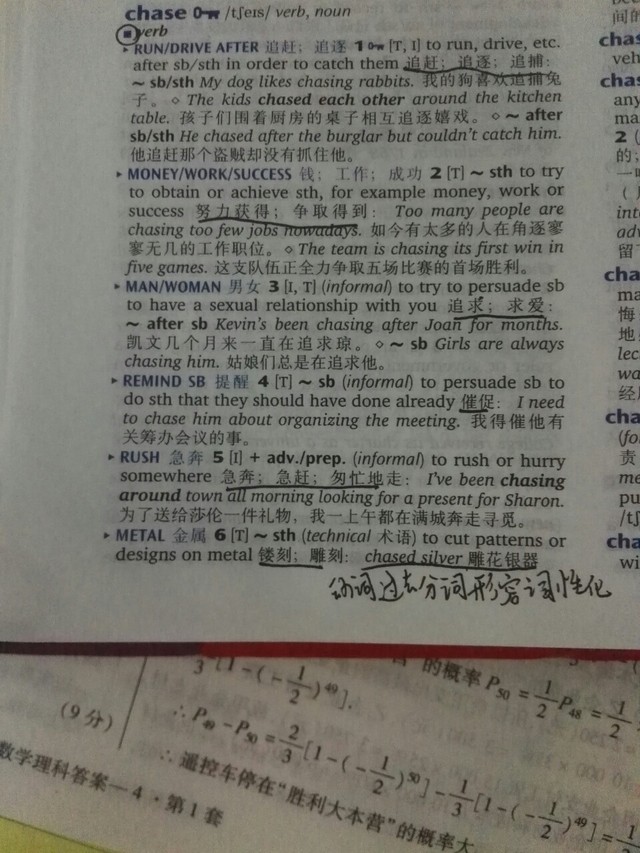 chase /tʃeɪs/ verb, noun
verb
RUN/DRIVE AFTER 追赶；追逐 1 [T, I] to run, drive, etc.
after sb/sth in order to catch them 追赶；追逐；追捕：
~ sb/sth My dog likes chasing rabbits. 我的狗喜欢追捕兔
子。◇ The kids chased each other around the kitchen
table. 孩子们围着厨房的桌子相互追逐嬉戏。◇ ~ after
sb/sth He chased after the burglar but couldn't catch him.
他追赶那个盗贼却没有抓住他。
MONEY/WORK/SUCCESS 钱；工作；成功 2 [T] ~ sth to try
to obtain or achieve sth, for example money, work or
success 努力获得；争取得到： Too many people are
chasing too few jobs nowadays. 如今有太多的人在角逐寥
寥无几的工作职位。◇ The team is chasing its first win in
five games. 这支队伍正全力争取五场比赛的首场胜利。
MAN/WOMAN 男女 3 [I, T] (informal) to try to persuade sb
to have a sexual relationship with you 追求；求爱：
~ after sb Kevin's been chasing after Joan for months.
凯文几个月来一直在追求琼。◇ ~ sb Girls are always
chasing him. 姑娘们总是在追求他。
REMIND SB 提醒 4 [T] ~ sb (informal) to persuade sb to
do sth that they should have done already 催促： I need
to chase him about organizing the meeting. 我得催他有
关筹办会议的事。
RUSH 急奔 5 [I] + adv./prep. (informal) to rush or hurry
somewhere 急奔；急赶；匆忙地走： I've been chasing
around town all morning looking for a present for Sharon.
为了送给莎伦一件礼物，我一上午都在满城奔走寻觅。
METAL 金属 6 [T] ~ sth (technical 术语) to cut patterns or
designs on metal 镂刻；雕刻： chased silver 雕花银器
动词过去分词形容词性化
间的
chas
veh
chas
any
ma
2 (
的；
一
(
inte
adv
留
cha
ma
悔
地
lec
wa
经
cha
(fo
责
me
pu
/tʃ
cha
wi
的概率P₅₀=1/2P₄₈=1/2
3[1-(-1/2)⁴⁹].
(9分)
∴P₄₉-P₅₀=2/3[1-(-1/2)⁵⁰]-1/3[1-(-1/2)⁴⁹]=1
∴遥控车停在“胜利大本营”的概率大
数学理科答案—4·第1套